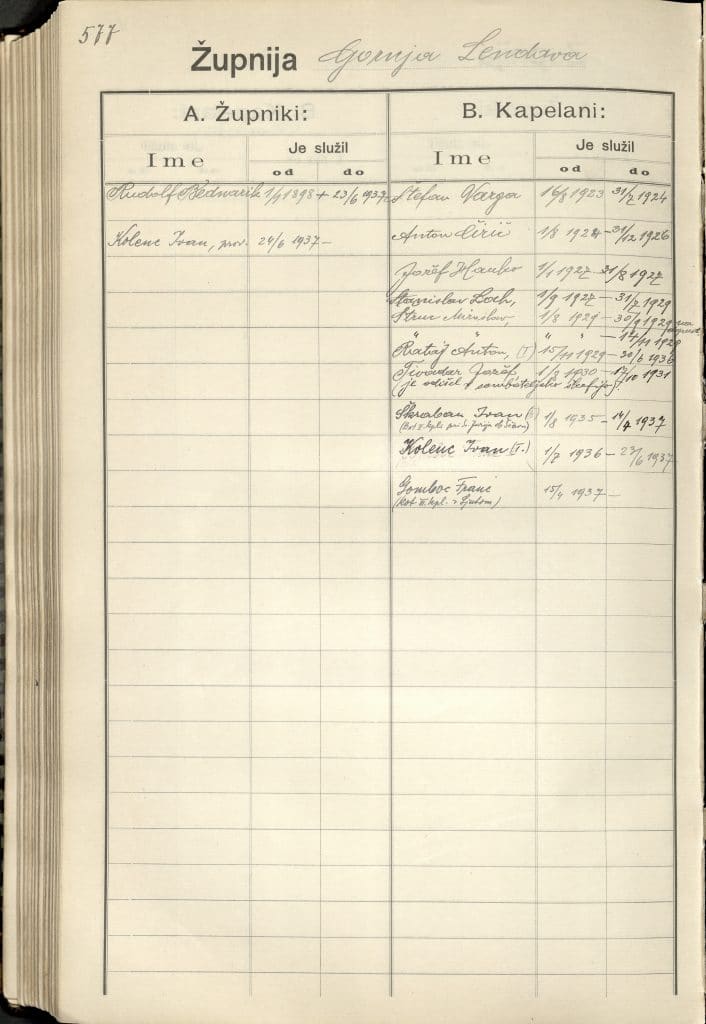 577
Župnija Gornja Lendava
A. Župniki:
Ime
Je služil
od do
Rudolf Bednarik 1/9 1898 + 23/6 1937
Kolenc Ivan, prov. 24/6 1937 –
B. Kapelani:
Ime
Je služil
od do
Štefan Varga 16/8 1923 31/7 1924
Anton Čirič 1/8 1924 – 31/12 1926
Jožef 1/1 1927 31/8 1927
Stanislav 1/9 1927 – 31/7 1929
Miroslav, 1/8 1929 – 30/9 1929
" " " " – 14/11 1929
Rataj Anton, (T) 15/11 1929 – 30/6 1936
Tivadar Jožef, 1/8 1930 – 17/10 1931
(je odišel v sombateljsko škofijo).
Škraban Ivan 1/8 1935 – 14/4 1937
(Kot II. kapl. pri
Kolenc Ivan (T.) 1/7 1936 – 23/6 1937
Gomboc Franc 15/4 1937 –
(kot II. kpl. s